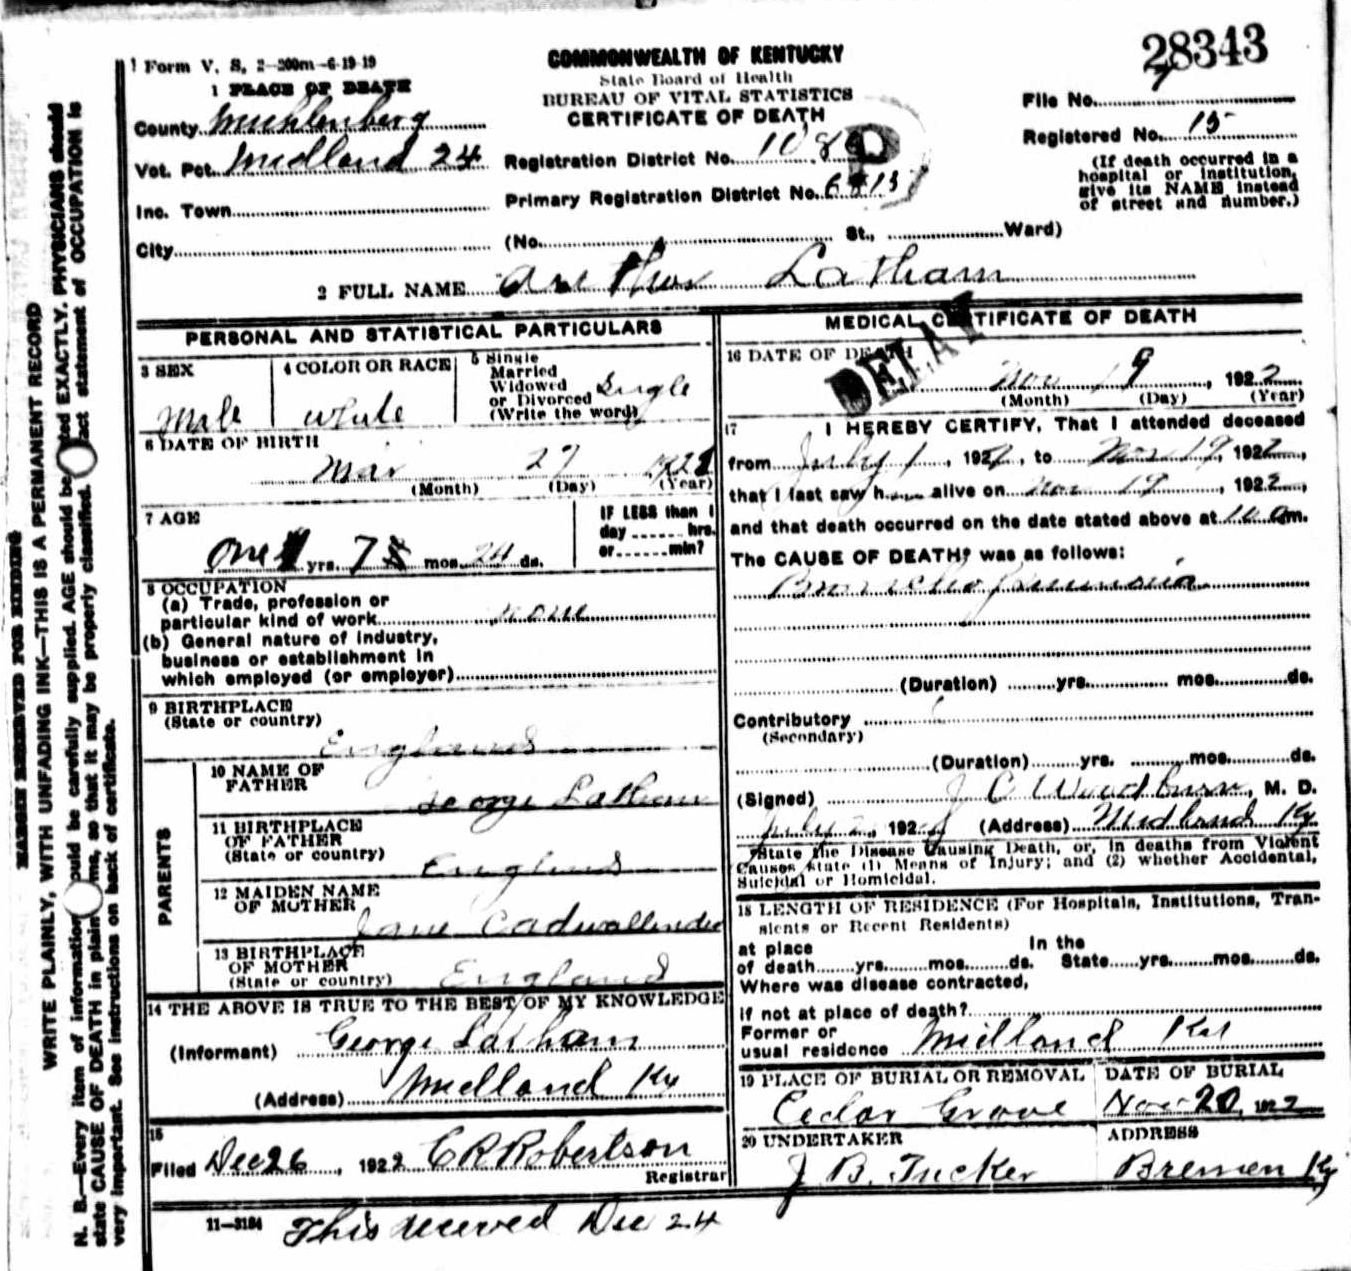 28343
Form V. S, 2—200m—6-19-19
COMMONWEALTH OF KENTUCKY
State Board of Health
BUREAU OF VITAL STATISTICS
CERTIFICATE OF DEATH
1 PLACE OF DEATH
County Muhlenberg
Vot. Pct. Midland 24
Inc. Town
City
Registration District No.
Primary Registration District No.
(No. St., Ward)
File No.
Registered No. 15
(If death occurred in a
hospital or institution,
give its NAME instead
of street and number.)
2 FULL NAME Arthur Latham
PERSONAL AND STATISTICAL PARTICULARS
3 SEX
Male
4 COLOR OR RACE
White
5 Single
Married
Widowed
or Divorced
(Write the word)
Single
6 DATE OF BIRTH
Mar 27 1921
(Month) (Day) (Year)
7 AGE
One yrs. 7 mos. 24 ds.
IF LESS than 1
day hrs.
or min?
8 OCCUPATION
(a) Trade, profession or
particular kind of work none
(b) General nature of industry,
business or establishment in
which employed (or employer)
9 BIRTHPLACE
(State or country)
England
PARENTS
10 NAME OF
FATHER
George Latham
11 BIRTHPLACE
OF FATHER
(State or country)
England
12 MAIDEN NAME
OF MOTHER
Jane Cadwallender
13 BIRTHPLACE
OF MOTHER
(State or country)
England
14 THE ABOVE IS TRUE TO THE BEST OF MY KNOWLEDGE
(Informant) George Latham
(Address) Midland Ky
15
Filed Dec 26, 1922 C R Robertson
Registrar
11—3184
This received Dec 24
MEDICAL CERTIFICATE OF DEATH
DELAY
16 DATE OF DEATH
Nov 19, 1922
(Month) (Day) (Year)
17 I HEREBY CERTIFY, That I attended deceased
from July 1, 192, to Nov 19, 1922,
that I last saw h alive on Nov 19, 1922,
and that death occurred on the date stated above at m.
The CAUSE OF DEATH* was as follows:
Broncho pneumonia
(Duration) yrs. mos. ds.
Contributory
(Secondary)
(Duration) yrs. mos. ds.
(Signed) J C Woodburn, M. D.
July 2, 192 (Address) Midland Ky
*State the Disease Causing Death, or, in deaths from Violent
Causes, state (1) Means of Injury; and (2) whether Accidental,
Suicidal or Homicidal.
18 LENGTH OF RESIDENCE (For Hospitals, Institutions, Tran-
sients or Recent Residents)
at place In the
of death yrs. mos. ds. State yrs. mos. ds.
Where was disease contracted,
if not at place of death?
Former or
usual residence Midland Ky
19 PLACE OF BURIAL OR REMOVAL
Cedar Grove
DATE OF BURIAL
Nov 20, 1922
20 UNDERTAKER
J B. Tucker
ADDRESS
Bremen Ky
MARGIN RESERVED FOR BINDING
WRITE PLAINLY, WITH UNFADING INK—THIS IS A PERMANENT RECORD
N. B.—Every item of information should be carefully supplied. AGE should be stated EXACTLY. PHYSICIANS should
state CAUSE OF DEATH in plain terms, so that it may be properly classified. Exact statement of OCCUPATION is
very important. See instructions on back of certificate.